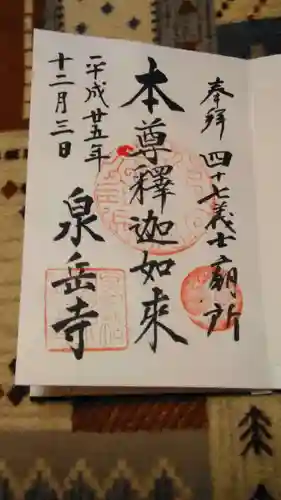 奉拜 四十七義士廟所
本尊釋迦如來
平成廿五年
十二月三日
泉岳寺